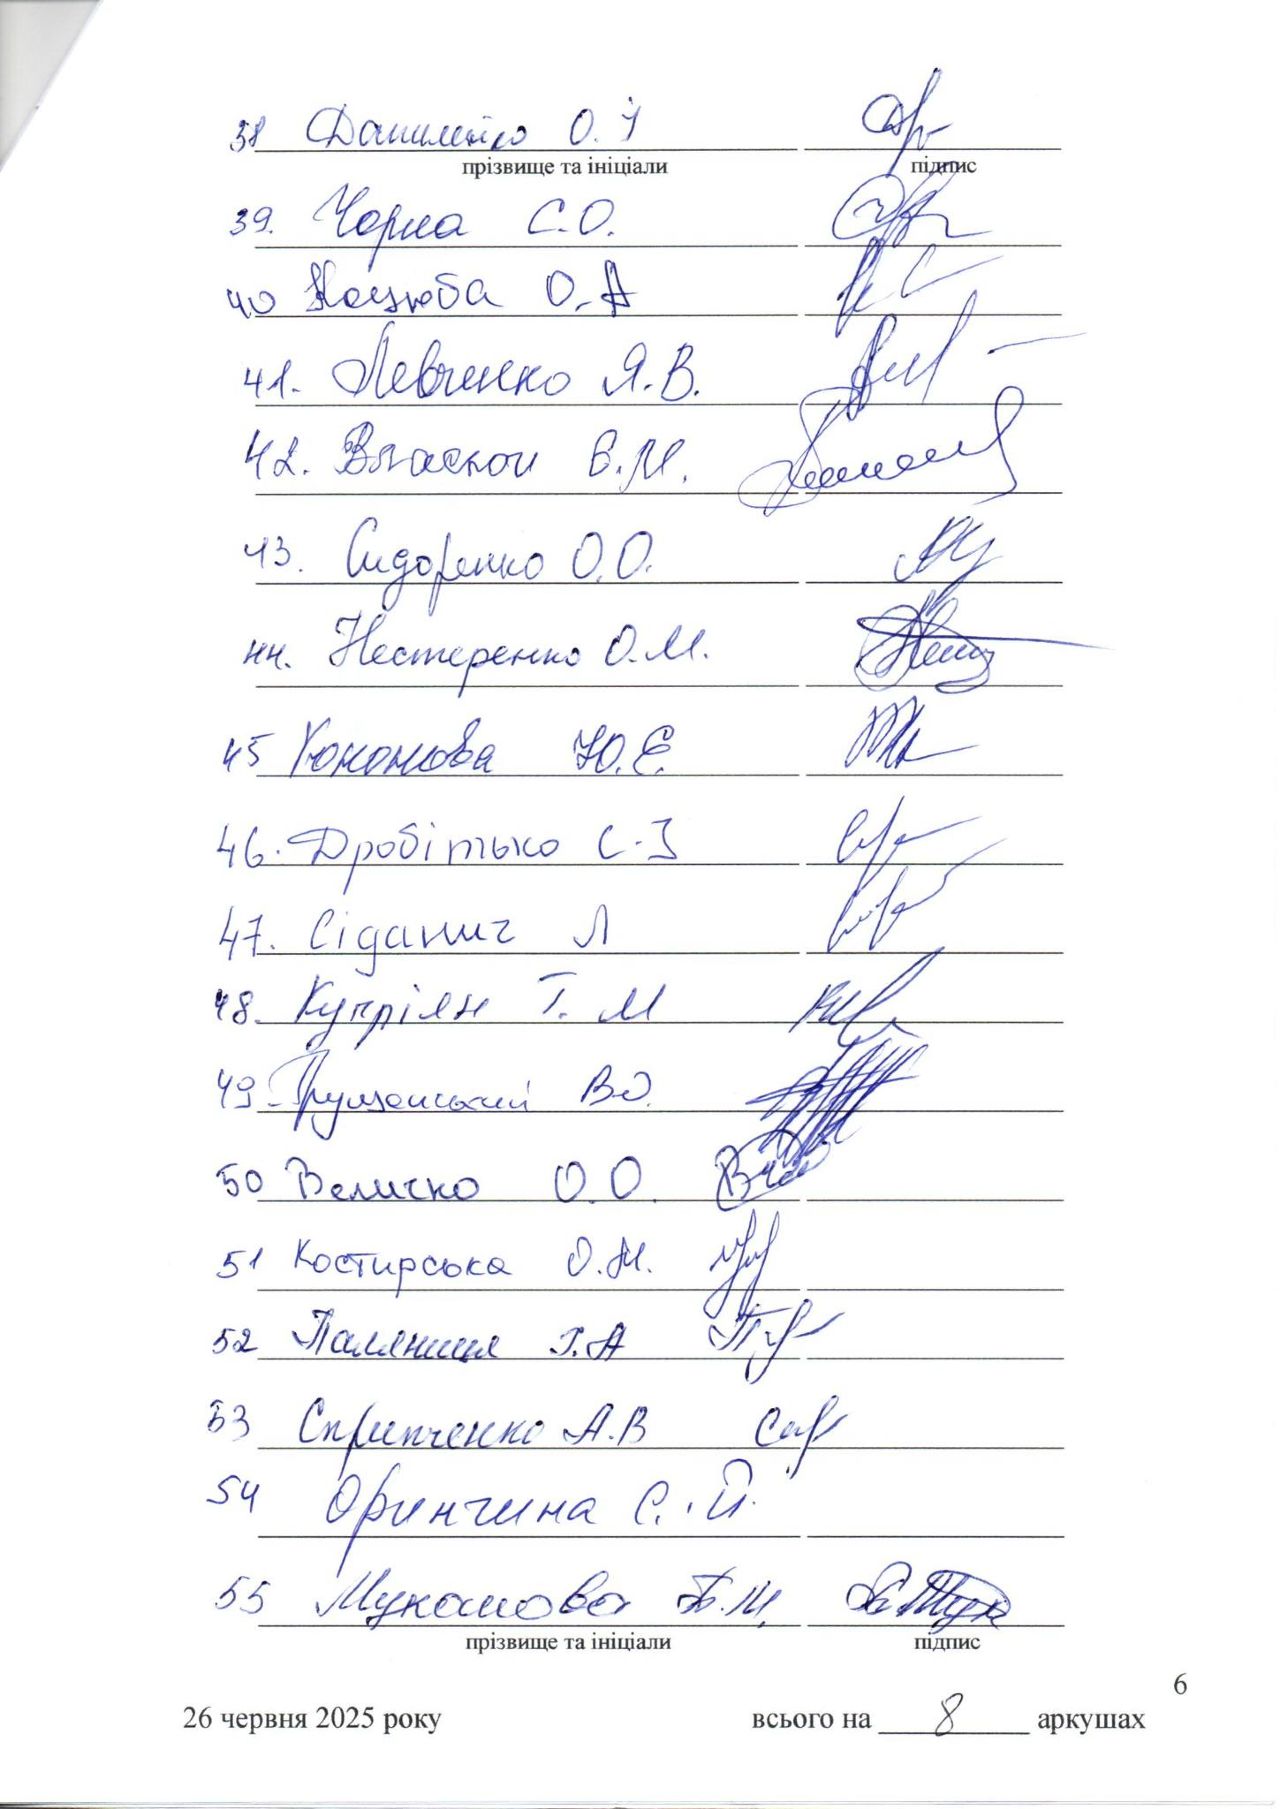 38 Даниленко О. І
прізвище та ініціали підпис
39. Чорна С.О.
40 Коцюба О.А
41. Левченко Я.В.
42. Власюк Є.М.
43. Сидоренко О.О.
44. Нестеренко О.М.
45 Кононова Ю.Е.
46. Дробітько С.З
47. Сіданич Л
48. Купріян Т. М
49 Грушанський В.О.
50 Величко О.О.
51 Костирська О.М.
52 Паляниця Т.А
53 Скрипченко А.В
54 Оринчина С. Й.
55 Мукомова Т.М.
прізвище та ініціали підпис
6
26 червня 2025 року всього на 8 аркушах